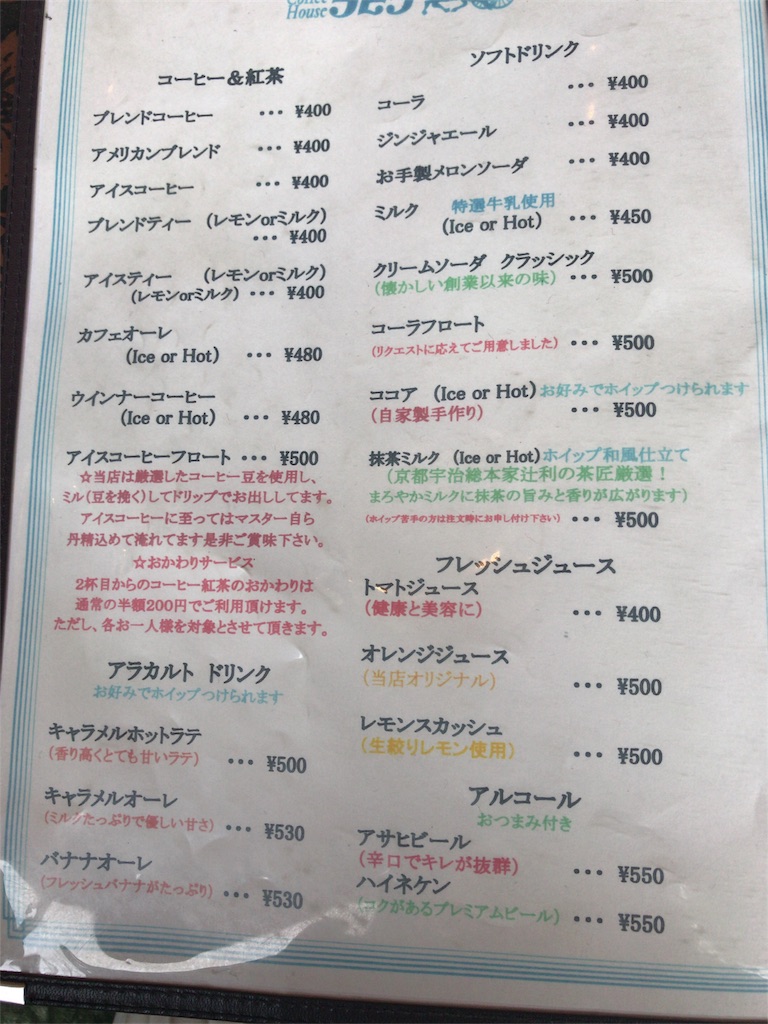 House
コーヒー&紅茶
ブレンドコーヒー ・・・ ¥400
アメリカンブレンド ・・・ ¥400
アイスコーヒー ・・・ ¥400
ブレンドティー (レモンorミルク)
・・・ ¥400
アイスティー (レモンorミルク)
(レモンorミルク) ・・・ ¥400
カフェオーレ
(Ice or Hot) ・・・ ¥480
ウインナーコーヒー
(Ice or Hot) ・・・ ¥480
アイスコーヒーフロート ・・・ ¥500
☆当店は厳選したコーヒー豆を使用し、
ミル(豆を挽く)してドリップでお出ししてます。
アイスコーヒーに至ってはマスター自ら
丹精込めて淹れてます是非ご賞味下さい。
☆おかわりサービス
2杯目からのコーヒー紅茶のおかわりは
通常の半額200円でご利用頂けます。
ただし、各お一人様を対象とさせて頂きます。
アラカルト ドリンク
お好みでホイップつけられます
キャラメルホットラテ
(香り高くとても甘いラテ) ・・・ ¥500
キャラメルオーレ
(ミルクたっぷりで優しい甘さ) ・・・ ¥530
バナナオーレ
(フレッシュバナナがたっぷり) ・・・ ¥530
ソフトドリンク
コーラ ・・・ ¥400
ジンジャエール ・・・ ¥400
お手製メロンソーダ ・・・ ¥400
ミルク 特選牛乳使用
(Ice or Hot) ・・・ ¥450
クリームソーダ クラッシック
(懐かしい創業以来の味) ・・・ ¥500
コーラフロート
(リクエストに応えてご用意しました) ・・・ ¥500
ココア (Ice or Hot) お好みでホイップつけられます
(自家製手作り) ・・・ ¥500
抹茶ミルク (Ice or Hot) ホイップ和風仕立て
(京都宇治総本家辻利の茶匠厳選!
まろやかミルクに抹茶の旨みと香りが広がります)
(ホイップ苦手の方は注文時にお申し付け下さい) ・・・ ¥500
フレッシュジュース
トマトジュース
(健康と美容に) ・・・ ¥400
オレンジジュース
(当店オリジナル) ・・・ ¥500
レモンスカッシュ
(生絞りレモン使用) ・・・ ¥500
アルコール
おつまみ付き
アサヒビール
(辛口でキレが抜群) ・・・ ¥550
ハイネケン
(コクがあるプレミアムビール) ・・・ ¥550